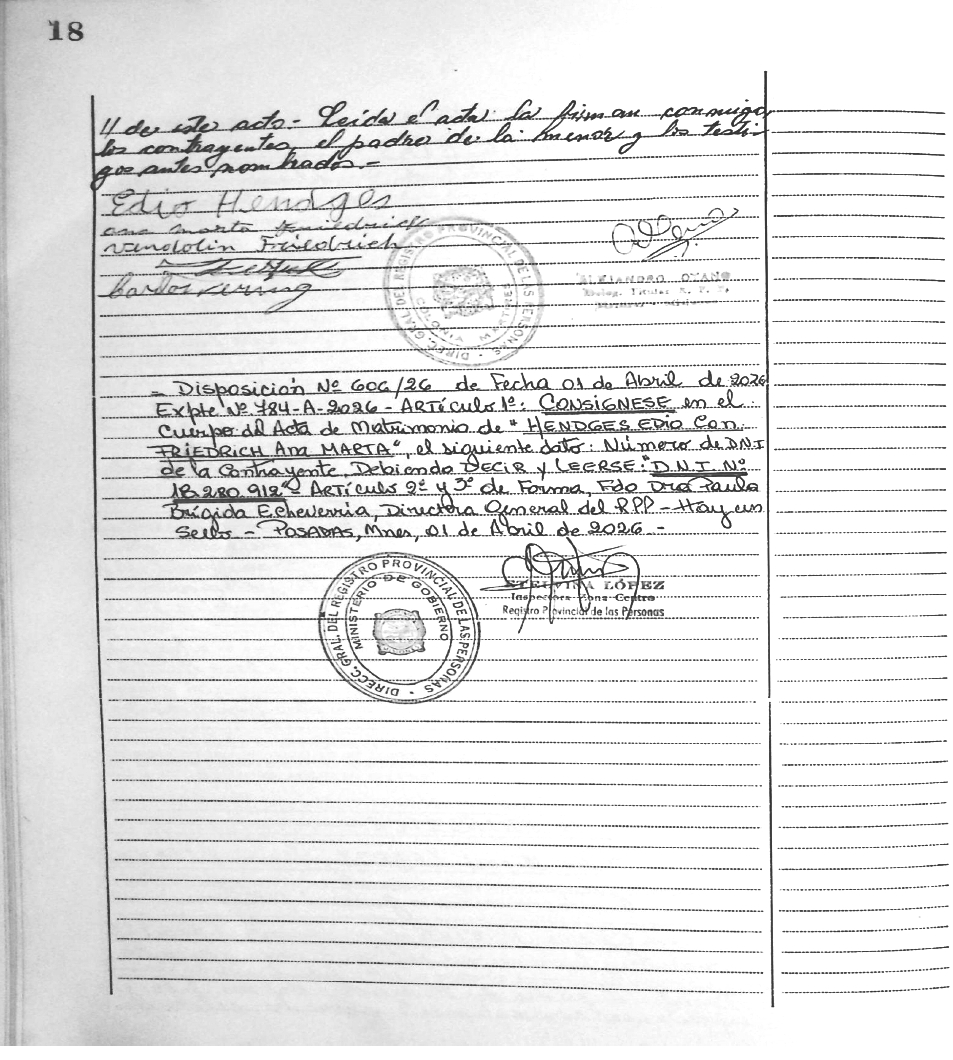 18
// de este acto.- Leída el acta la firman conmigo,
los contrayentes, el padre de la menor y los testi-
gos antes nombrados.-
Edio Hendges
ana marta Friedrich
Vendolin Friedrich
Carlos
DIRECC. GRAL. DEL REGISTRO PROVINCIAL DE LAS PERSONAS
ALEJANDRO OYANO
- Disposición Nº 606/26 de Fecha 01 de Abril de 2026
Expte Nº 784-A-2026 - ARTÍCULO 1º: CONSIGNESE en el
Cuerpo del Acta de Matrimonio de "HENDGES EDIO Con
FRIEDRICH Ana MARTA", el siguiente dato: Número de D.N.I
de la Contrayente. Debiendo DECIR y LEERSE: "D.N.I. Nº
18.280.912" - ARTÍCULO 2º y 3º de Forma, Fdo Dra Paula
Brigida Echeverria, Directora General del RPP - Hay un
Sello - POSADAS, Mnes, 01 de Abril de 2026 -
ETELVINA LÓPEZ
Inspectora Zona Centro
Registro Provincial de las Personas
DIRECC. GRAL. DEL REGISTRO PROVINCIAL DE LAS PERSONAS
MINISTERIO DE GOBIERNO